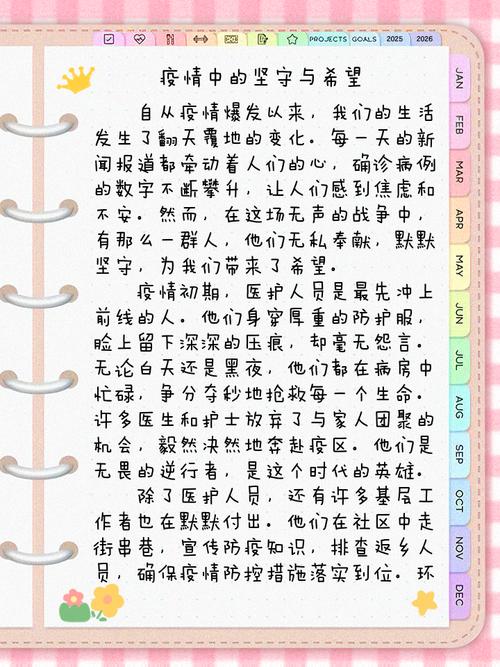 PROJECTS GOALS 2025 2026
疫情中的坚守与希望
自从疫情爆发以来，我们的生活
发生了翻天覆地的变化。每一天的新
闻报道都牵动着人们的心，确诊病例
的数字不断攀升，让人们感到焦虑和
不安。然而，在这场无声的战争中，
有那么一群人，他们无私奉献，默默
坚守，为我们带来了希望。
疫情初期，医护人员是最先冲上
前线的人。他们身穿厚重的防护服，
脸上留下深深的压痕，却毫无怨言。
无论白天还是黑夜，他们都在病房中
忙碌，争分夺秒地抢救每一个生命。
许多医生和护士放弃了与家人团聚的
机会，毅然决然地奔赴疫区。他们是
无畏的逆行者，是这个时代的英雄。
除了医护人员，还有许多基层工
作者也在默默付出。他们在社区中走
街串巷，宣传防疫知识，排查返乡人
员，确保疫情防控措施落实到位。环
JAN
FEB
MAR
APR
MAY
JUN
JUL
AUG
SEP
OCT
NOV
DEC